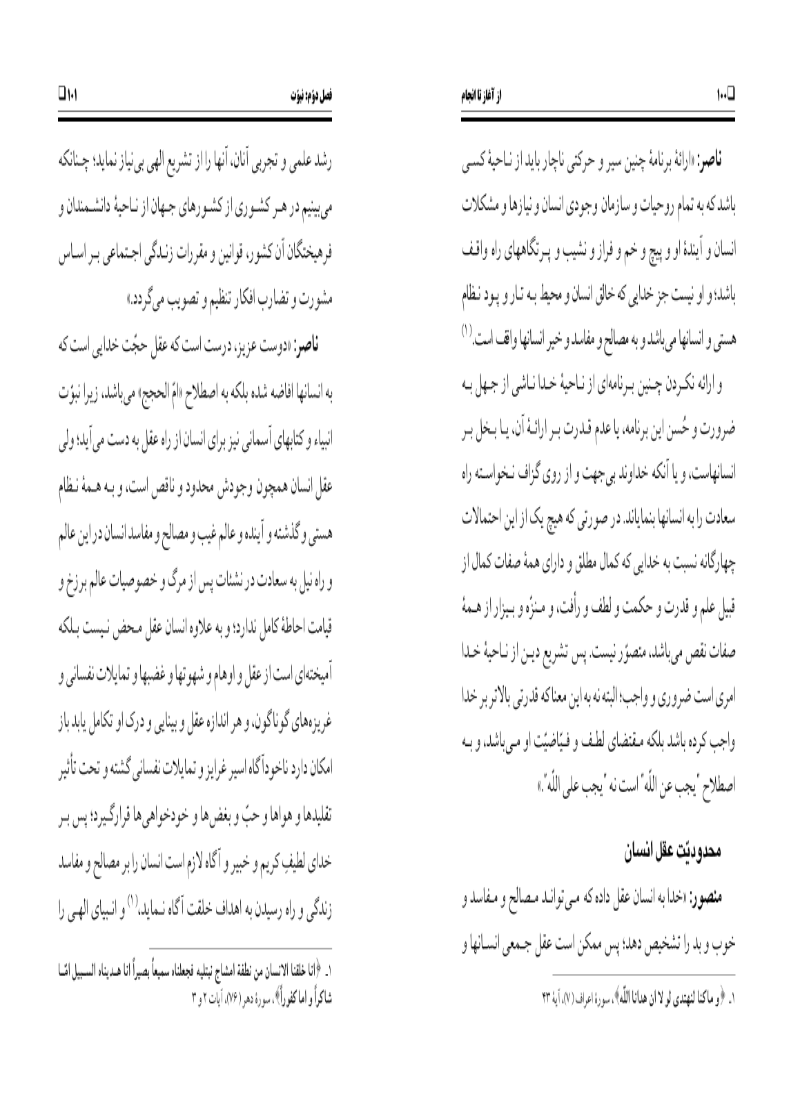 ❑ ۱۰۰ از آغاز تا انجام
ناصر: «ارائهٔ برنامهٔ چنین سیر و حرکتی ناچار باید از ناحیهٔ کسی
باشد که به تمام روحیات و سازمان وجودی انسان و نیازها و مشکلات
انسان و آیندهٔ او و پیچ و خم و فراز و نشیب و پرتگاههای راه واقف
باشد؛ و او نیست جز خدایی که خالق انسان و محیط به تار و پود نظام
هستی و انسانها می‌باشد و به مصالح و مفاسد و خیر انسانها واقف است.(۱)
و ارائه نکردن چنین برنامه‌ای از ناحیهٔ خدا ناشی از جهل به
ضرورت و حُسن این برنامه، یا عدم قدرت بر ارائهٔ آن، یا بخل بر
انسانهاست، و یا آنکه خداوند بی‌جهت و از روی گزاف نخواسته راه
سعادت را به انسانها بنمایاند. در صورتی که هیچ یک از این احتمالات
چهارگانه نسبت به خدایی که کمال مطلق و دارای همهٔ صفات کمال از
قبیل علم و قدرت و حکمت و لطف و رأفت، و منزّه و بیزار از همهٔ
صفات نقص می‌باشد، متصوّر نیست. پس تشریع دین از ناحیهٔ خدا
امری است ضروری و واجب؛ البته نه به این معنا که قدرتی بالاتر بر خدا
واجب کرده باشد بلکه مقتضای لطف و فیّاضیّت او می‌باشد، و به
اصطلاح "یجب عن اللّه" است نه "یجب علی اللّه".»
محدودیّت عقل انسان
منصور: «خدا به انسان عقل داده که می‌تواند مصالح و مفاسد و
خوب و بد را تشخیص دهد؛ پس ممکن است عقل جمعی انسانها و
۱ـ ﴿و ما کنا لنهتدی لو لا ان هدانا اللّه﴾، سورهٔ اعراف (۷)، آیهٔ ۴۳
فصل دوّم: نبوّت ۱۰۱ ❑
رشد علمی و تجربی آنان، آنها را از تشریع الهی بی‌نیاز نماید؛ چنانکه
می‌بینیم در هر کشوری از کشورهای جهان از ناحیهٔ دانشمندان و
فرهیختگان آن کشور، قوانین و مقررات زندگی اجتماعی بر اساس
مشورت و تضارب افکار تنظیم و تصویب می‌گردد.»
ناصر: «دوست عزیز، درست است که عقل حجّت خدایی است که
به انسانها افاضه شده بلکه به اصطلاح «امّ الحجج» می‌باشد، زیرا نبوّت
انبیاء و کتابهای آسمانی نیز برای انسان از راه عقل به دست می‌آید؛ ولی
عقل انسان همچون وجودش محدود و ناقص است، و به همهٔ نظام
هستی و گذشته و آینده و عالم غیب و مصالح و مفاسد انسان در این عالم
و راه نیل به سعادت در نشئات پس از مرگ و خصوصیات عالم برزخ و
قیامت احاطهٔ کامل ندارد؛ و به علاوه انسان عقل محض نیست بلکه
آمیخته‌ای است از عقل و اوهام و شهوتها و غضبها و تمایلات نفسانی و
غریزه‌های گوناگون، و هر اندازه عقل و بینایی و درک او تکامل یابد باز
امکان دارد ناخودآگاه اسیر غرایز و تمایلات نفسانی گشته و تحت تأثیر
تقلیدها و هواها و حبّ و بغض‌ها و خودخواهی‌ها قرار گیرد؛ پس بر
خدای لطیفِ کریم و خبیر و آگاه لازم است انسان را بر مصالح و مفاسد
زندگی و راه رسیدن به اهداف خلقت آگاه نماید،(۱) و انبیای الهی را
۱ـ ﴿انا خلقنا الانسان من نطفة امشاج نبتلیه فجعلناه سمیعاً بصیراً انا هدیناه السبیل امّا
شاکراً و اما کفوراً﴾، سورهٔ دهر (۷۶)، آیات ۲ و ۳